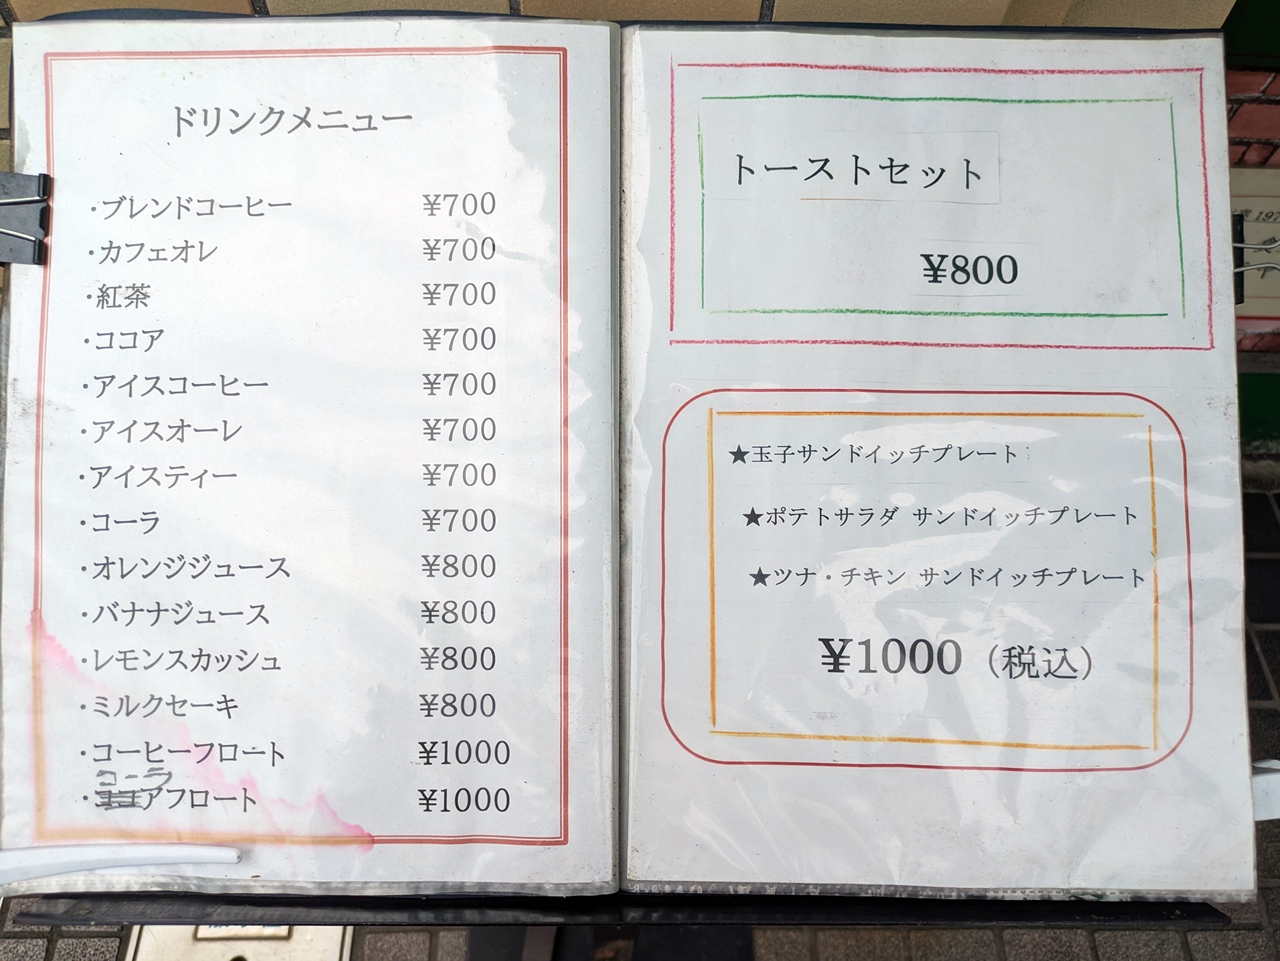 ドリンクメニュー
・ブレンドコーヒー ¥700
・カフェオレ ¥700
・紅茶 ¥700
・ココア ¥700
・アイスコーヒー ¥700
・アイスオーレ ¥700
・アイスティー ¥700
・コーラ ¥700
・オレンジジュース ¥800
・バナナジュース ¥800
・レモンスカッシュ ¥800
・ミルクセーキ ¥800
・コーヒーフロート ¥1000
コーラ
・ココアフロート ¥1000
トーストセット
¥800
★玉子サンドイッチプレート
★ポテトサラダ サンドイッチプレート
★ツナ・チキン サンドイッチプレート
¥1000（税込）
197